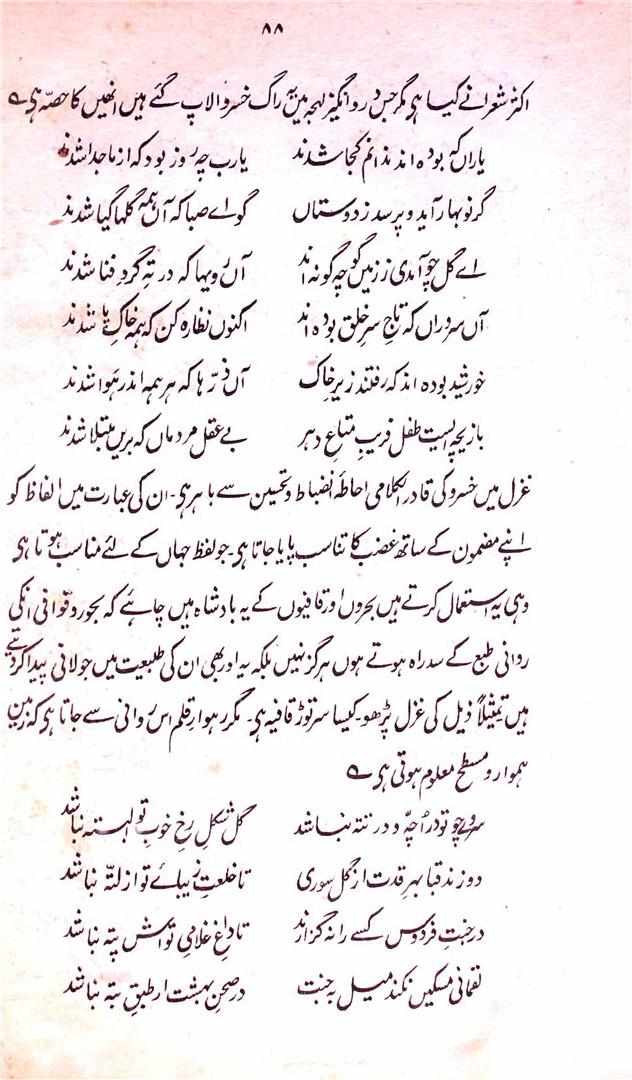 ۸۸
اکثر شعرا نے کیا ہی مگر جس درد انگیز لہجہ میں یہ راگ خسرو الاپ گئے ہیں انھیں کا حصّہ ہی ؎
یاراں کہ بودہ اند ندانم کجا شدند یارب چہ روز بود کہ از ما جدا شدند
گر نو بہار آید و پرسد ز دوستاں گو اے صبا کہ آں ہمہ گلہا گیا شدند
اے گل چو آمدی ز زمیں گو چہ گونہ اند آں رویہا کہ در تہِ گردِ فنا شدند
آں سروراں کہ تاجِ سرِ خلق بودہ اند اکنوں نظارہ کن کہ ہمہ خاکِ پا شدند
خورشید بودہ اند کہ رفتند زیرِ خاک آں ذرّہا کہ ہر ہمہ اندر ہوا شدند
بازیچہ ایست طفل فریب متاعِ دہر بے عقل مردماں کہ بریں مبتلا شدند
غزل میں خسرو کی قادر الکلامی احاطۂ انضباط و تحسین سے باہر ہی۔ ان کی عبارت میں الفاظ کو
اپنے مضمون کے ساتھ غضب کا تناسب پایا جاتا ہی۔ جو لفظ جہاں کے لئے مناسب ہوتا ہی
وہی یہ استعمال کرتے ہیں بحروں اور قافیوں کے یہ بادشاہ ہیں چاہئے کہ بحور و قوافی انکی
روانی طبع کے سدراہ ہوتے ہوں ہرگز نہیں بلکہ یہ اور بھی ان کی طبیعت میں جولانی پیدا کردیتے
ہیں تمثیلاً ذیل کی غزل پڑھو۔ کیسا سر توڑ قافیہ ہی۔ مگر رہوارِ قلم اس روانی سے جاتا ہی کہ زمین
ہموار و مسطح معلوم ہوتی ہی ؎
سروے چو تو در اُچّہ و در تتہ نباشد گل شکلِ رخِ خوبِ تو البتہ نباشد
دوزند قبا بہرِ قدت از گلِ سوری تا خلعتِ زیبائے تو از لتّہ نباشد
در جنتِ فردوس کسے را نہ گزارند تا داغِ غلامیِ تواش پتہ نباشد
نقمانی مسکیں نکند میل بہ جنت در صحنِ بہشت ار طبقِ بتہ نباشد